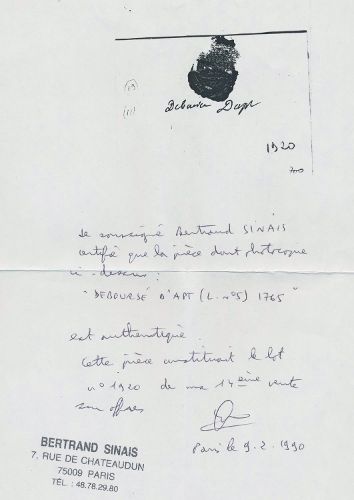 Deboursé Dapt
1920
Je soussigné Bertrand SINAIS
certifie que la pièce dont photocopie
ci-dessus :
"DEBOURSÉ D'APT (L. n°5) 1765"
est authentique.
Cette pièce constituait le lot
n° 1920 de ma 14ème vente
sur offres
Paris le 9.2.1990
BERTRAND SINAIS
7, RUE DE CHATEAUDUN
75009 PARIS
TÉL. : 48.78.29.80